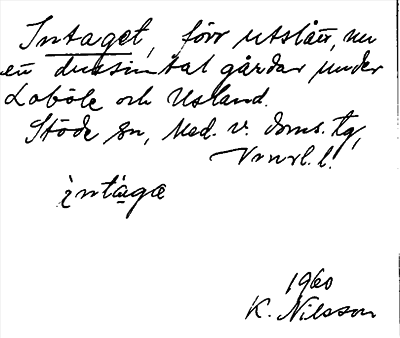 Intaget, förr utslått, nu
ett dussintal gårdar under
Loböle och Usland.
Stöde sn, Med. v. doms. tg,
Vnrl. l.
intagæ
1960
K. Nilsson